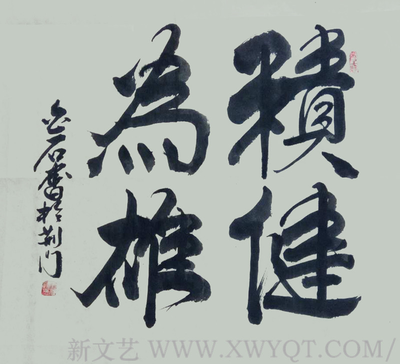 積健
為雄
石書於荆门
新文艺 WWW.XWYQT.COM/